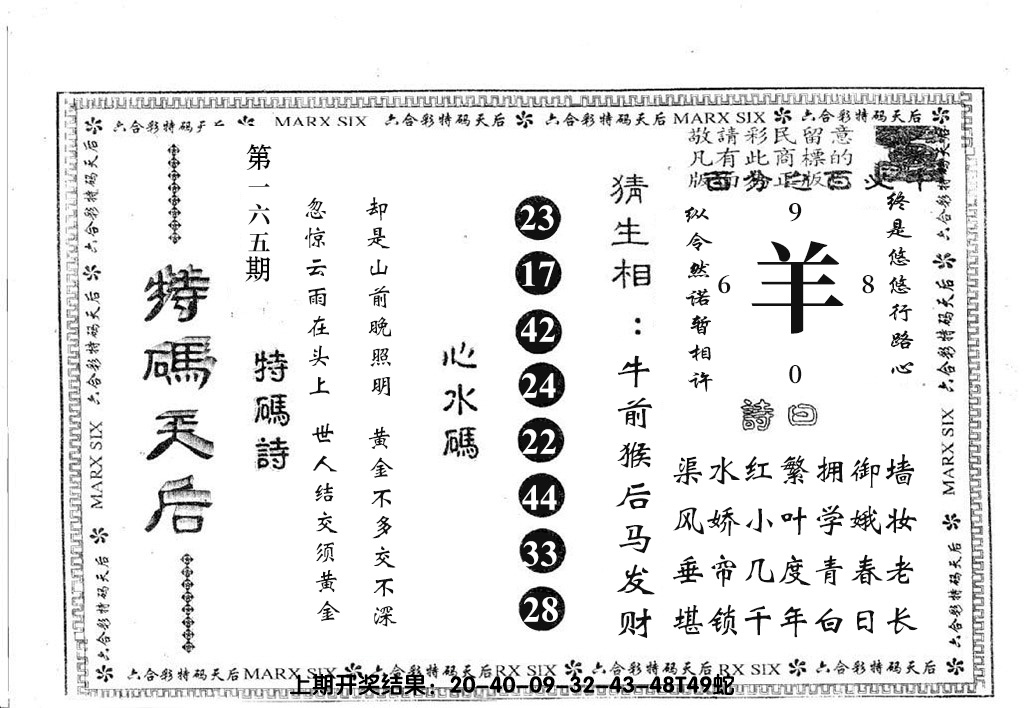 六合彩特码天后 MARX SIX 六合彩特码天后 六合彩特码天后 MARX SIX 六合彩特码天后
敬請彩民留意
凡有此商標的
版面为正版
第一六五期
特碼天后
特碼詩
忽惊云雨在头上 世人结交须黄金
却是山前晚照明 黄金不多交不深
心水碼
23
17
42
24
22
44
33
28
猜生相：牛前猴后马发财
纵令然诺暂相许
终是悠悠行路心
9
6 羊 8
0
詩曰
渠水红繁拥御墙
风娇小叶学娥妆
垂帘几度青春老
堪锁千年白日长
六合彩特码天后 MARX SIX 六合彩特码天后
六合彩特码天后 MARX SIX 六合彩特码天后
六合彩特码天后 MARX SIX 六合彩特码天后 RX SIX 六合彩特码天后 RX SIX 六合彩特码天后
上期开奖结果：20-40-09-32-43-48T49蛇